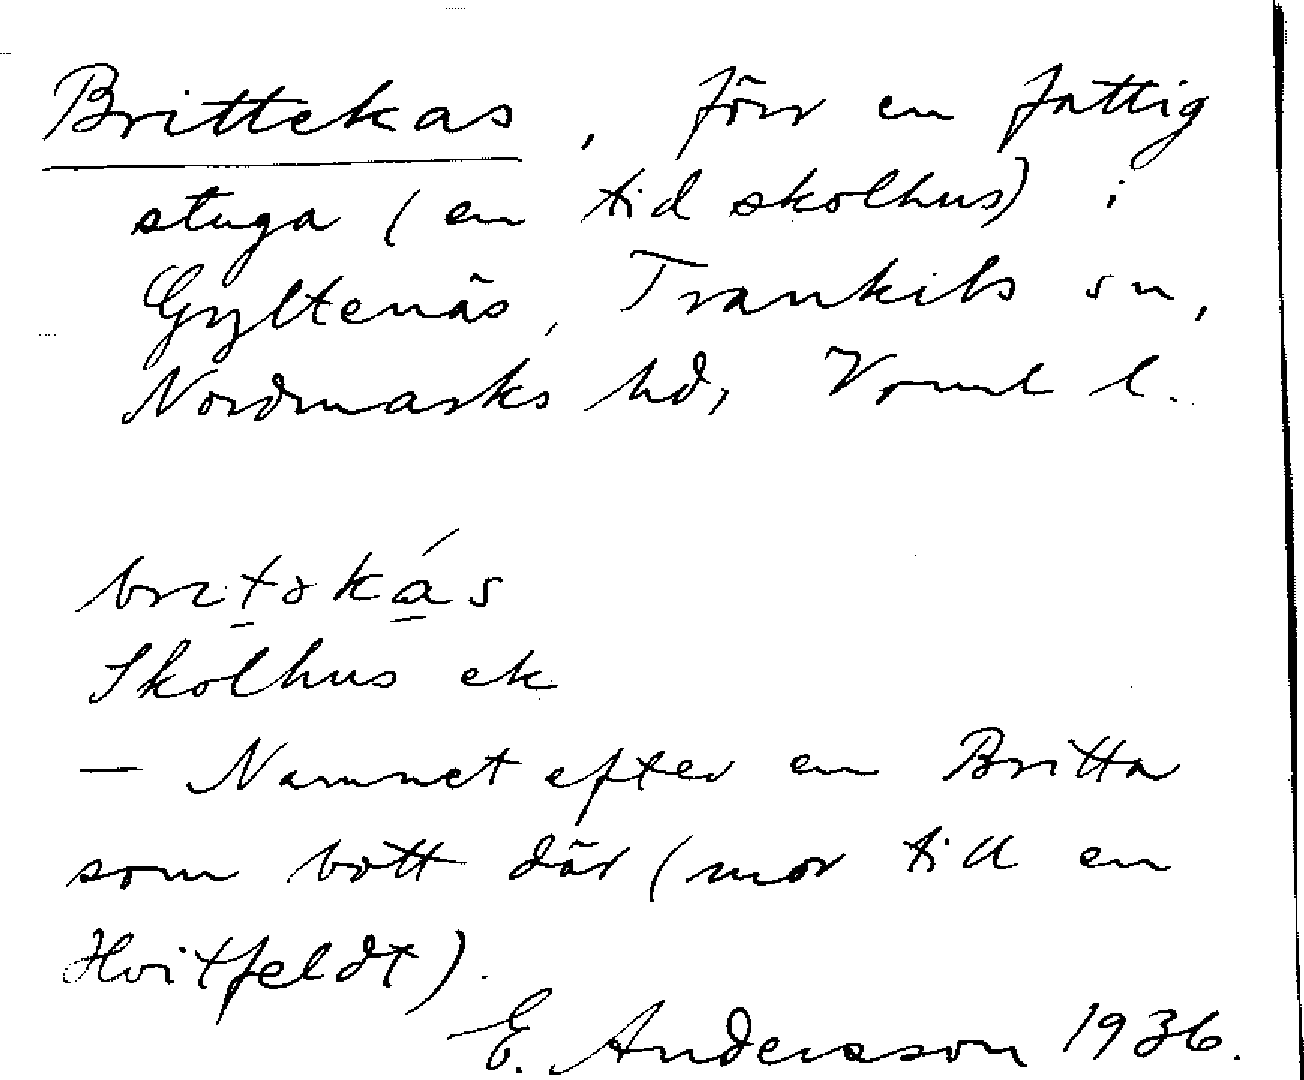 Brittekas, förr en fattig
stuga (en tid skolhus) i
Gyltenäs, Trankils sn,
Nordmarks hd, Vrml l.
Skolhus ek
— Namnet efter en Britta
som bott där (mor till en
Hvitfeldt).
E. Andersson 1936.